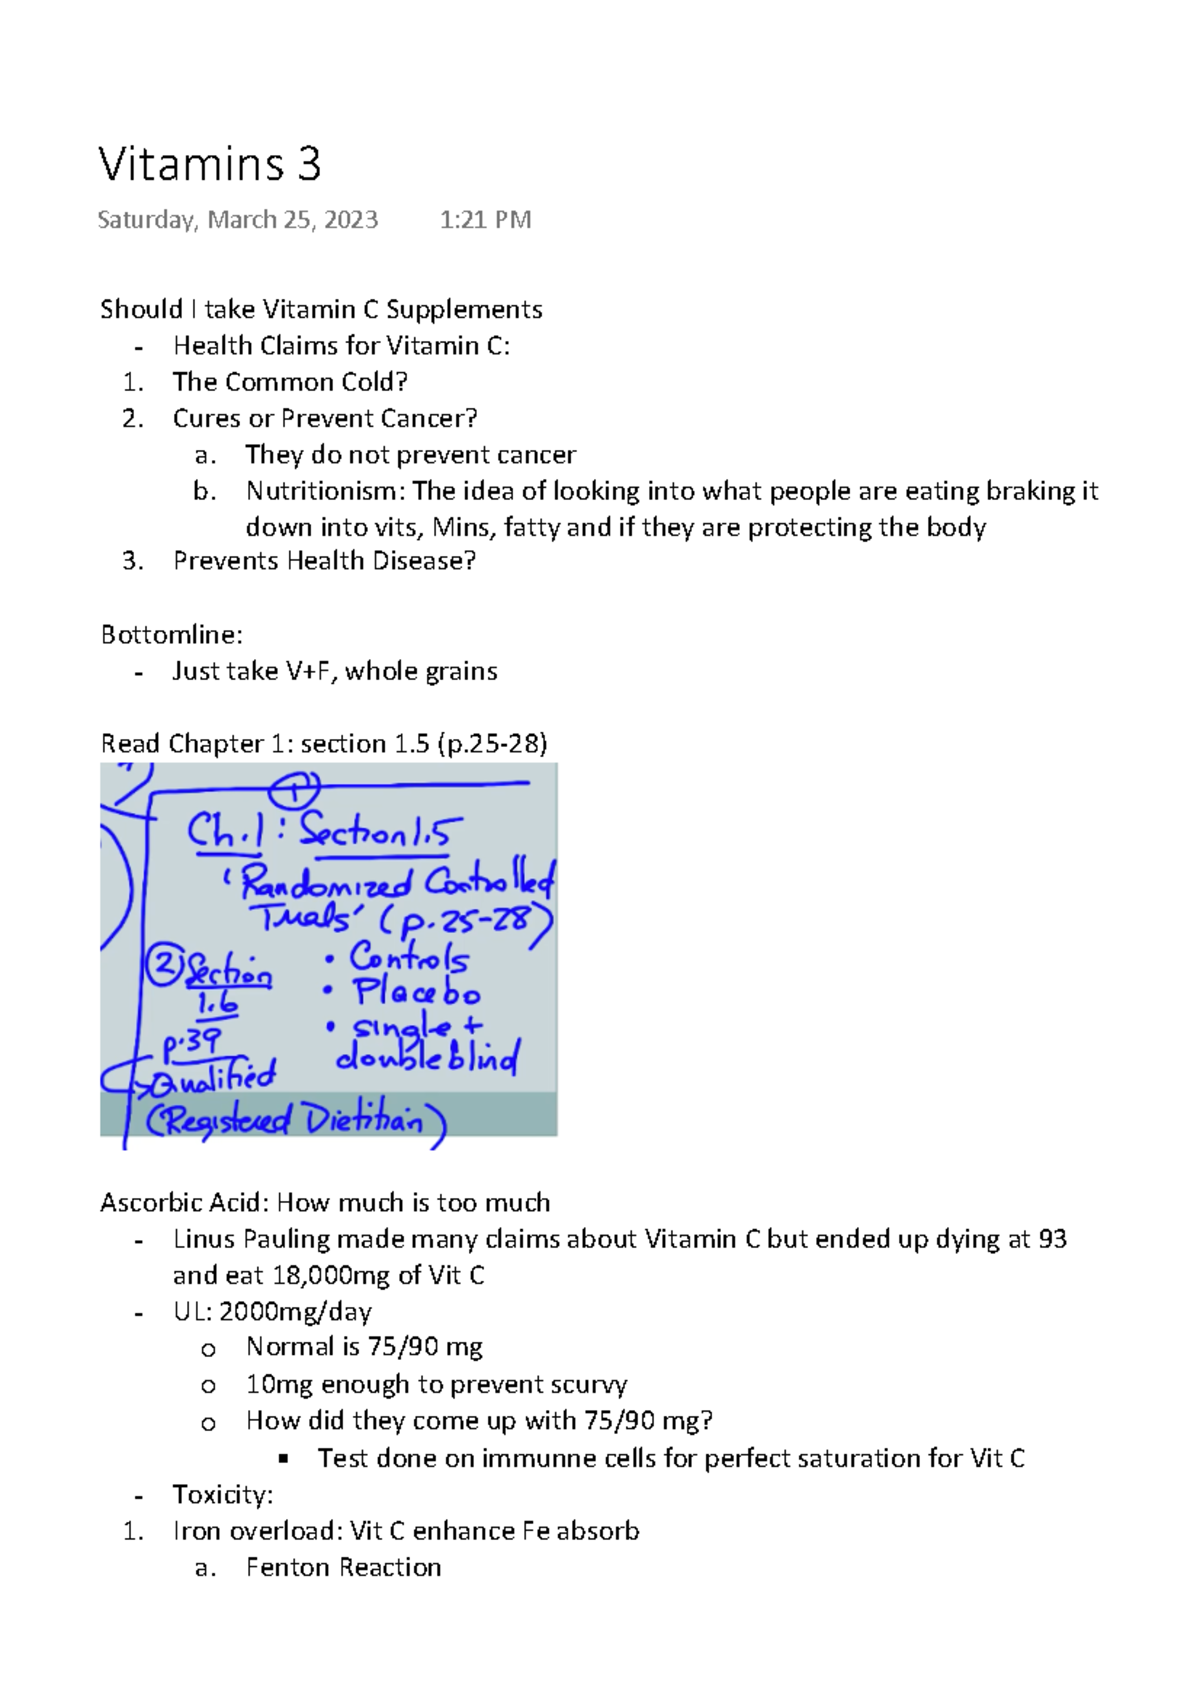 Vitamins 3
Saturday, March 25, 2023 1:21 PM
Should I take Vitamin C Supplements
- Health Claims for Vitamin C:
1. The Common Cold?
2. Cures or Prevent Cancer?
a. They do not prevent cancer
b. Nutritionism: The idea of looking into what people are eating braking it
down into vits, Mins, fatty and if they are protecting the body
3. Prevents Health Disease?
Bottomline:
- Just take V+F, whole grains
Read Chapter 1: section 1.5 (p.25-28)
1
Ch.1: Section 1.5
'Randomized Controlled
Trials' (p.25-28)
• Controls
• Placebo
• single +
double blind
2 Section
1.6
p.39
Qualified
(Registered Dietitian)
Ascorbic Acid: How much is too much
- Linus Pauling made many claims about Vitamin C but ended up dying at 93
and eat 18,000mg of Vit C
- UL: 2000mg/day
o Normal is 75/90 mg
o 10mg enough to prevent scurvy
o How did they come up with 75/90 mg?
▪ Test done on immunne cells for perfect saturation for Vit C
- Toxicity:
1. Iron overload: Vit C enhance Fe absorb
a. Fenton Reaction